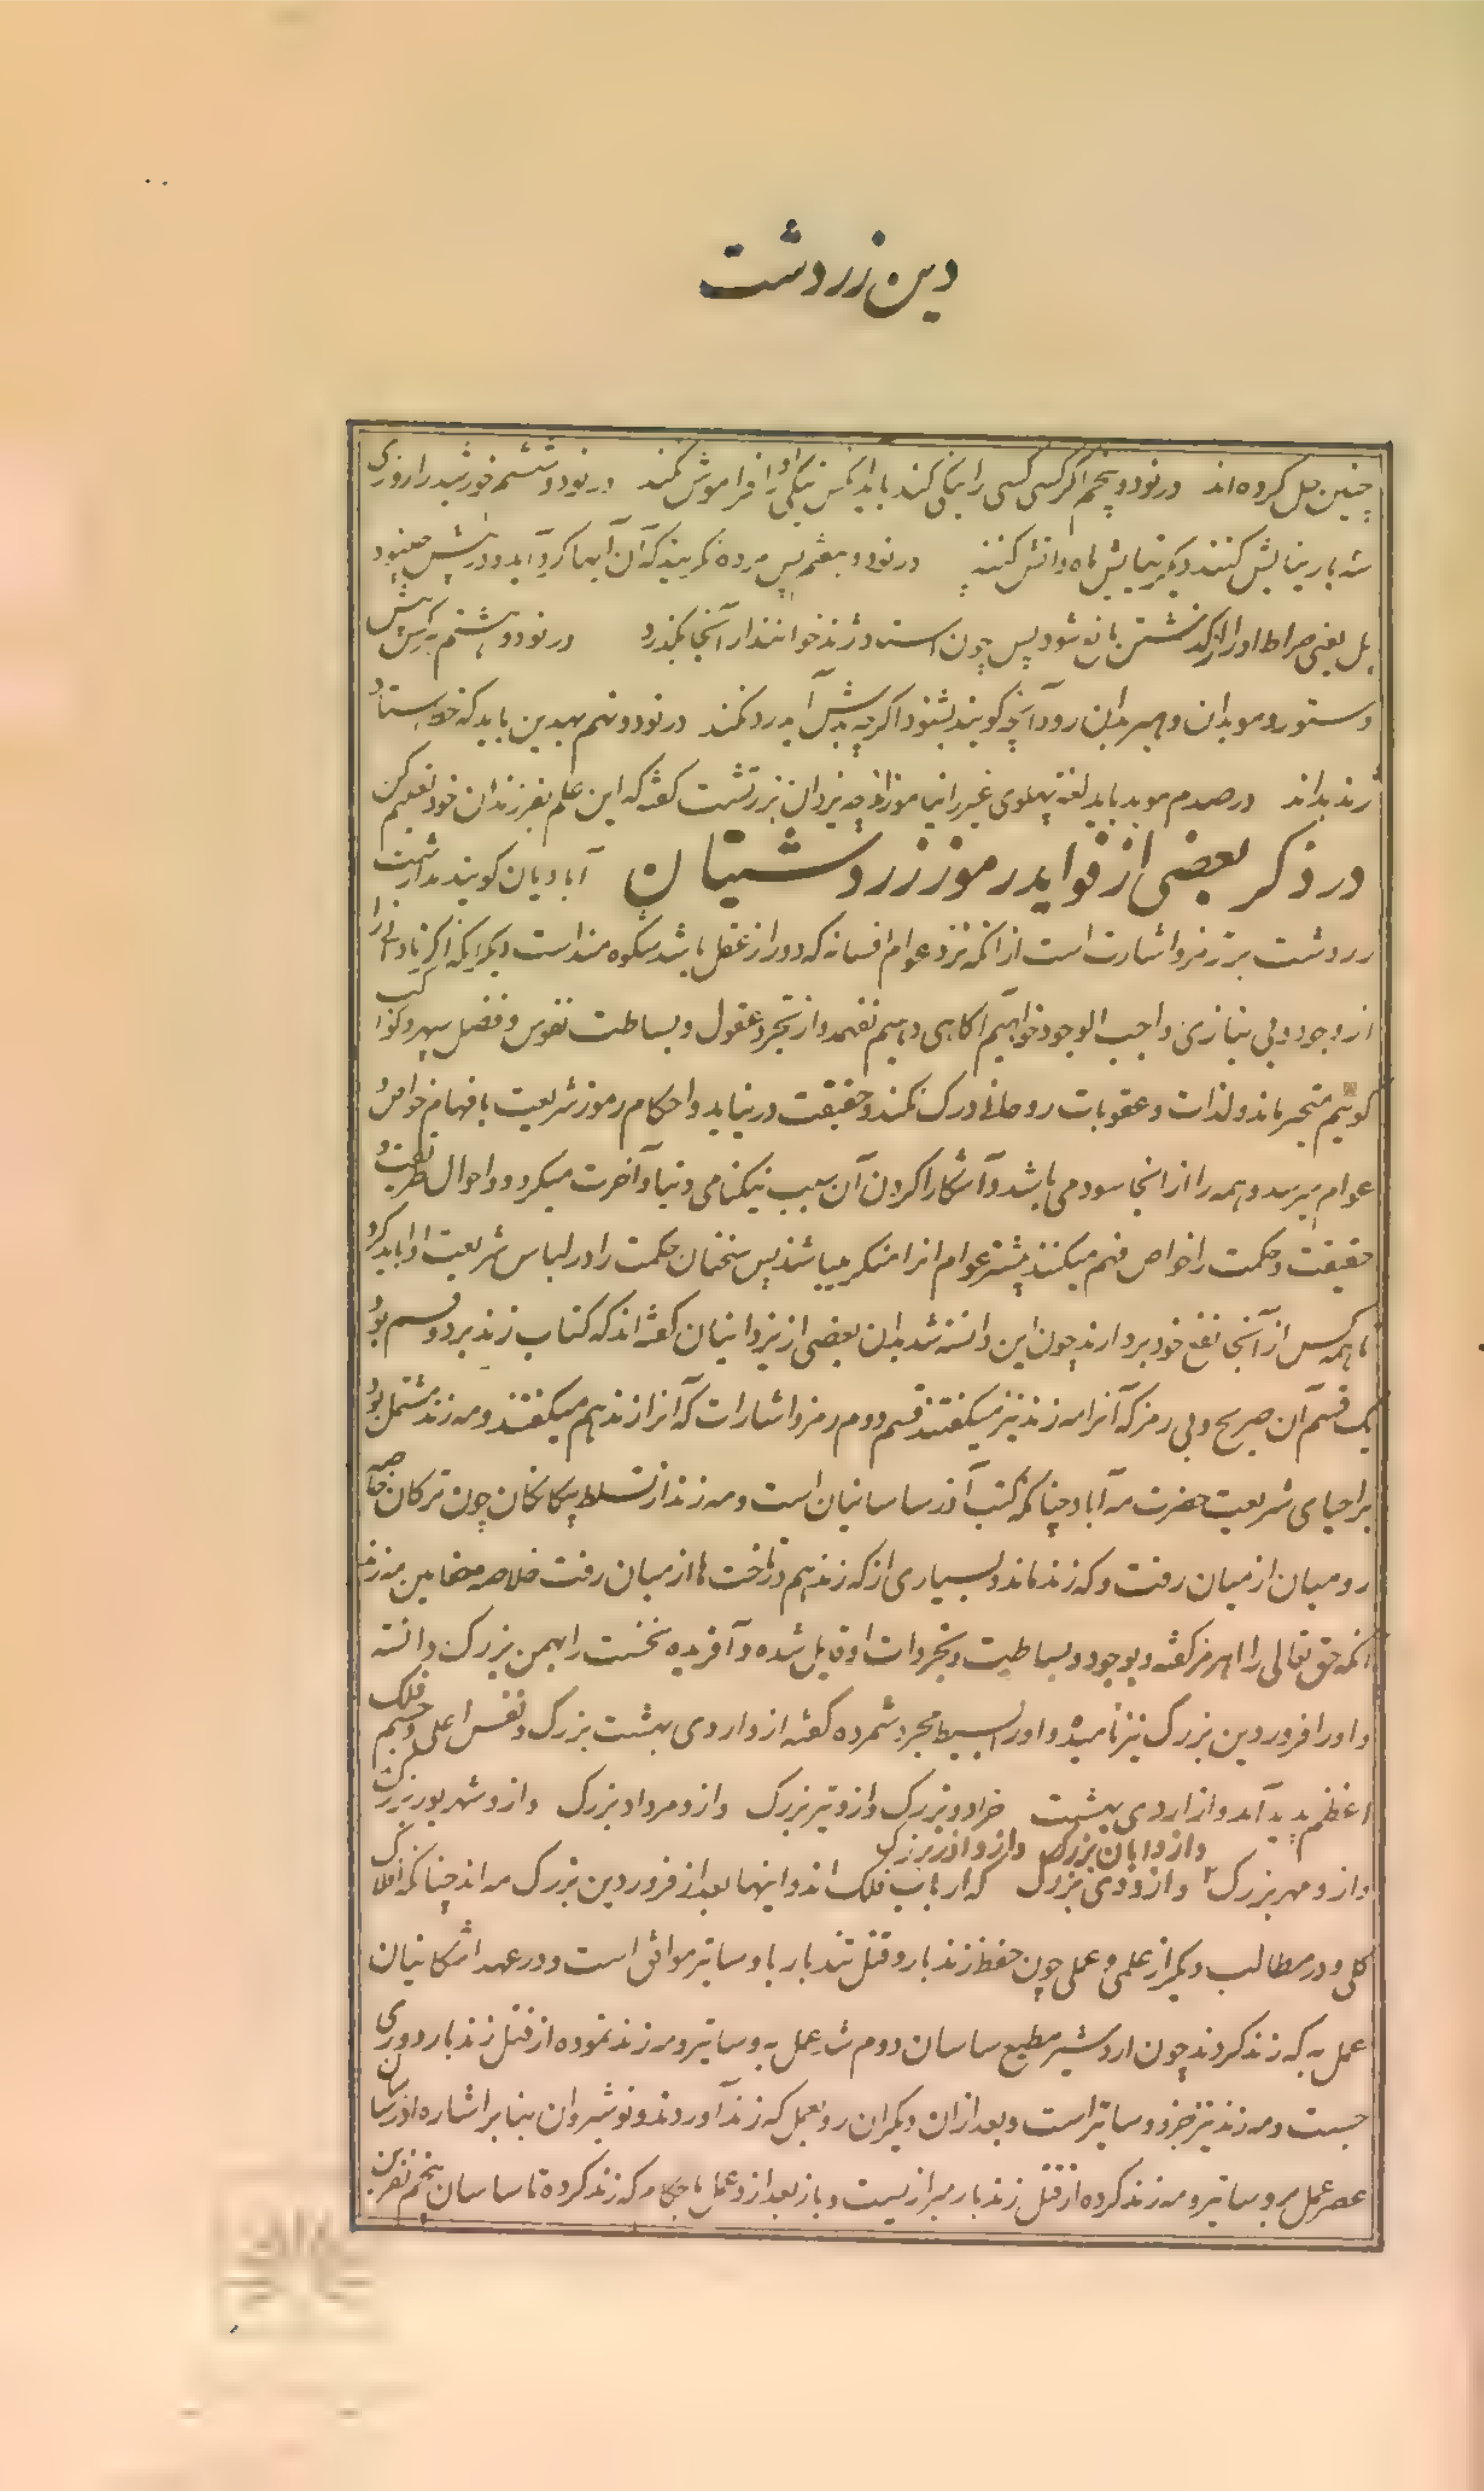 دین زردشت
چنین حل کرده‌اند در نود و پنجم اگر کسی کسی را نیکی کند باید آنکس نیکی او را فراموش نکند در نود و ششم خورشید را روزی
سه بار نیایش کنند دیگر نیایش ماه و آتش کنند در نود و هفتم پس مرده نگریند که آن آبها گرد آید و در پیش چینود
پل یعنی صراط او را از گذشتن مانع شود پس چون استا و ژند خوانند از آنجا بگذرد در نود و هشتم به پرسش
دستور و موبدان و هیربدان رود آنچه گویند بشنود اگرچه بدش آید رد نکند در نود و نهم بهدین باید که خط استا و
ژند بداند در صدم موبد باید لغت پهلوی غیر را نیاموزد چه یزدان بزرتشت گفته که این علم بفرزندان خود تعلیم کن
در ذکر بعضی از فواید رموز زردشتیان آبادیان گویند مدار شت
زردشت بر رمز و اشارت است از آنکه نزد عوام افسانه که دور از عقل باشد شکوه مند است دیگر آنکه اگر نادانی را
از وجود و بی نیازی واجب الوجود خواهیم آگاهی دهیم نفهمد و از تجرد عقول و بساطت نفوس و فضل سپهر و کواکب
گوئیم متحیر ماند و لذات و عقوبات روحانی درک نکند و حقیقت در نیابد و احکام رموز شریعت بافهام خواص و
عوام میرسد و همه را از آنجا سود می باشد و آشکارا کردن آن سبب نیکنامی دنیا و آخرت میگردد و احوال طریقت و
حقیقت و حکمت را خواص فهم میکنند بیشتر عوام آنرا منکر میباشند پس سخنان حکمت را در لباس شریعت ادا باید کرد
تا همه کس از آنجا نفع خود بردارند چون این دانسته شد بدان بعضی از یزدانیان گفته‌اند که کتاب زند بر دو قسم بود
یک قسم آن صریح و بی رمز که آنرا مه زند نیز میگفتند قسم دوم رمز و اشارات که آنرا زند هم میگفتند و مه زند مشتمل بود
بر احیای شریعت حضرت مه آباد چنانکه کتب آذر ساسانیان است و مه زند از تسلط بیگانگان چون ترکان خاصه
رومیان از میان رفت و که زند ماند و بسیاری از که زند هم در تاخت ها از میان رفت خلاصه مضامین مه زند
آنکه حق تعالی را اهرمز گفته و بوجود و بساطت و تجرد ذات او قایل شده و آفریده نخست را بهمن بزرگ دانسته
و او را فروردین بزرگ نیز نامیده و او را بسیط مجرد شمرده گفته از و اردی بهشت بزرگ و نفس اعلی و جسم فلک
اعظم پدید آمد و از اردی بهشت خرداد بزرگ و از و تیر بزرگ و از و مرداد بزرگ و از و شهریور بزرگ
و از و مهر بزرگ ۲ و از و آبان بزرگ و از و آذر بزرگ و از و دی بزرگ که ارباب فلک اند و اینها بعد از فروردین بزرگ مه اند چنانکه افلاک
کلی و در مطالب دیگر از علمی و عملی چون حفظ زندبار و قتل تندبار با دساتیر موافق است و در عهد اشکانیان
عمل به که زند کردند چون اردشیر مطیع ساسان دوم شد عمل به دساتیر و مه زند نموده از قتل زندبار دوری
جست و مه زند نیز جزو دساتیر است و بعد از آن دیگران رو بعمل که زند آوردند و نوشیروان بنا بر اشاره آذر ساسان
عصر عمل بر دساتیر و مه زند کرده از قتل زندبار میرازیست و باز بعد از و عمل باحکام که زند کرده تا ساسان پنجم نفرین